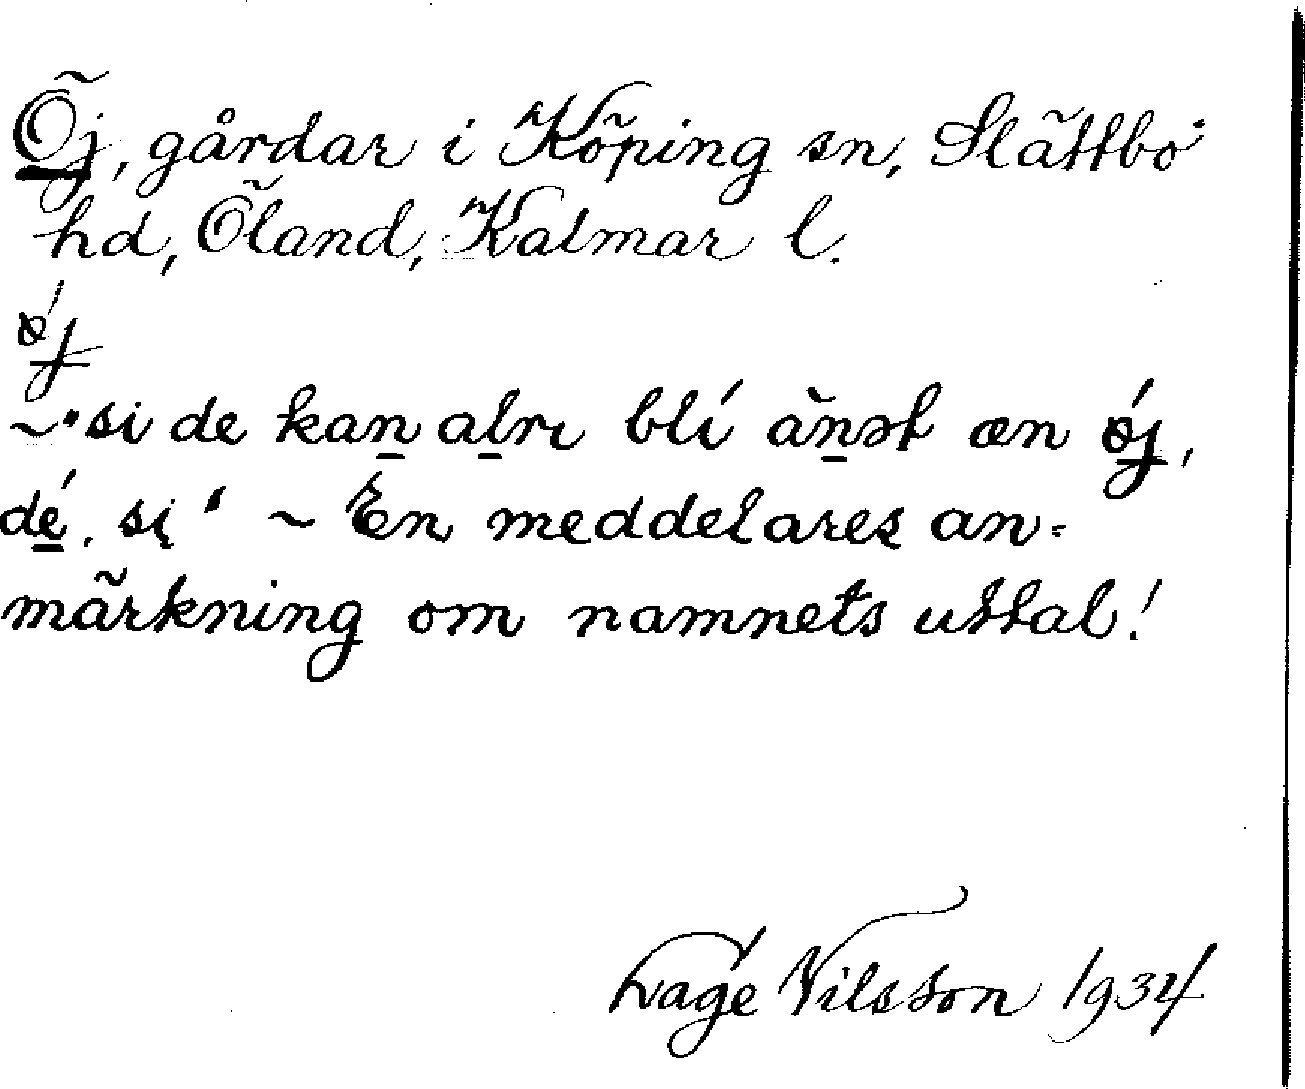 Öj, gårdar i Köping sn, Slättbo
hd, Öland, Kalmar l.
ǿj
~ "si de kan alrı blí ä̀nət æn ǿj,
dé. si̜" ~ En meddelares an=
märkning om namnets uttal!
Lage Nilsson 1934